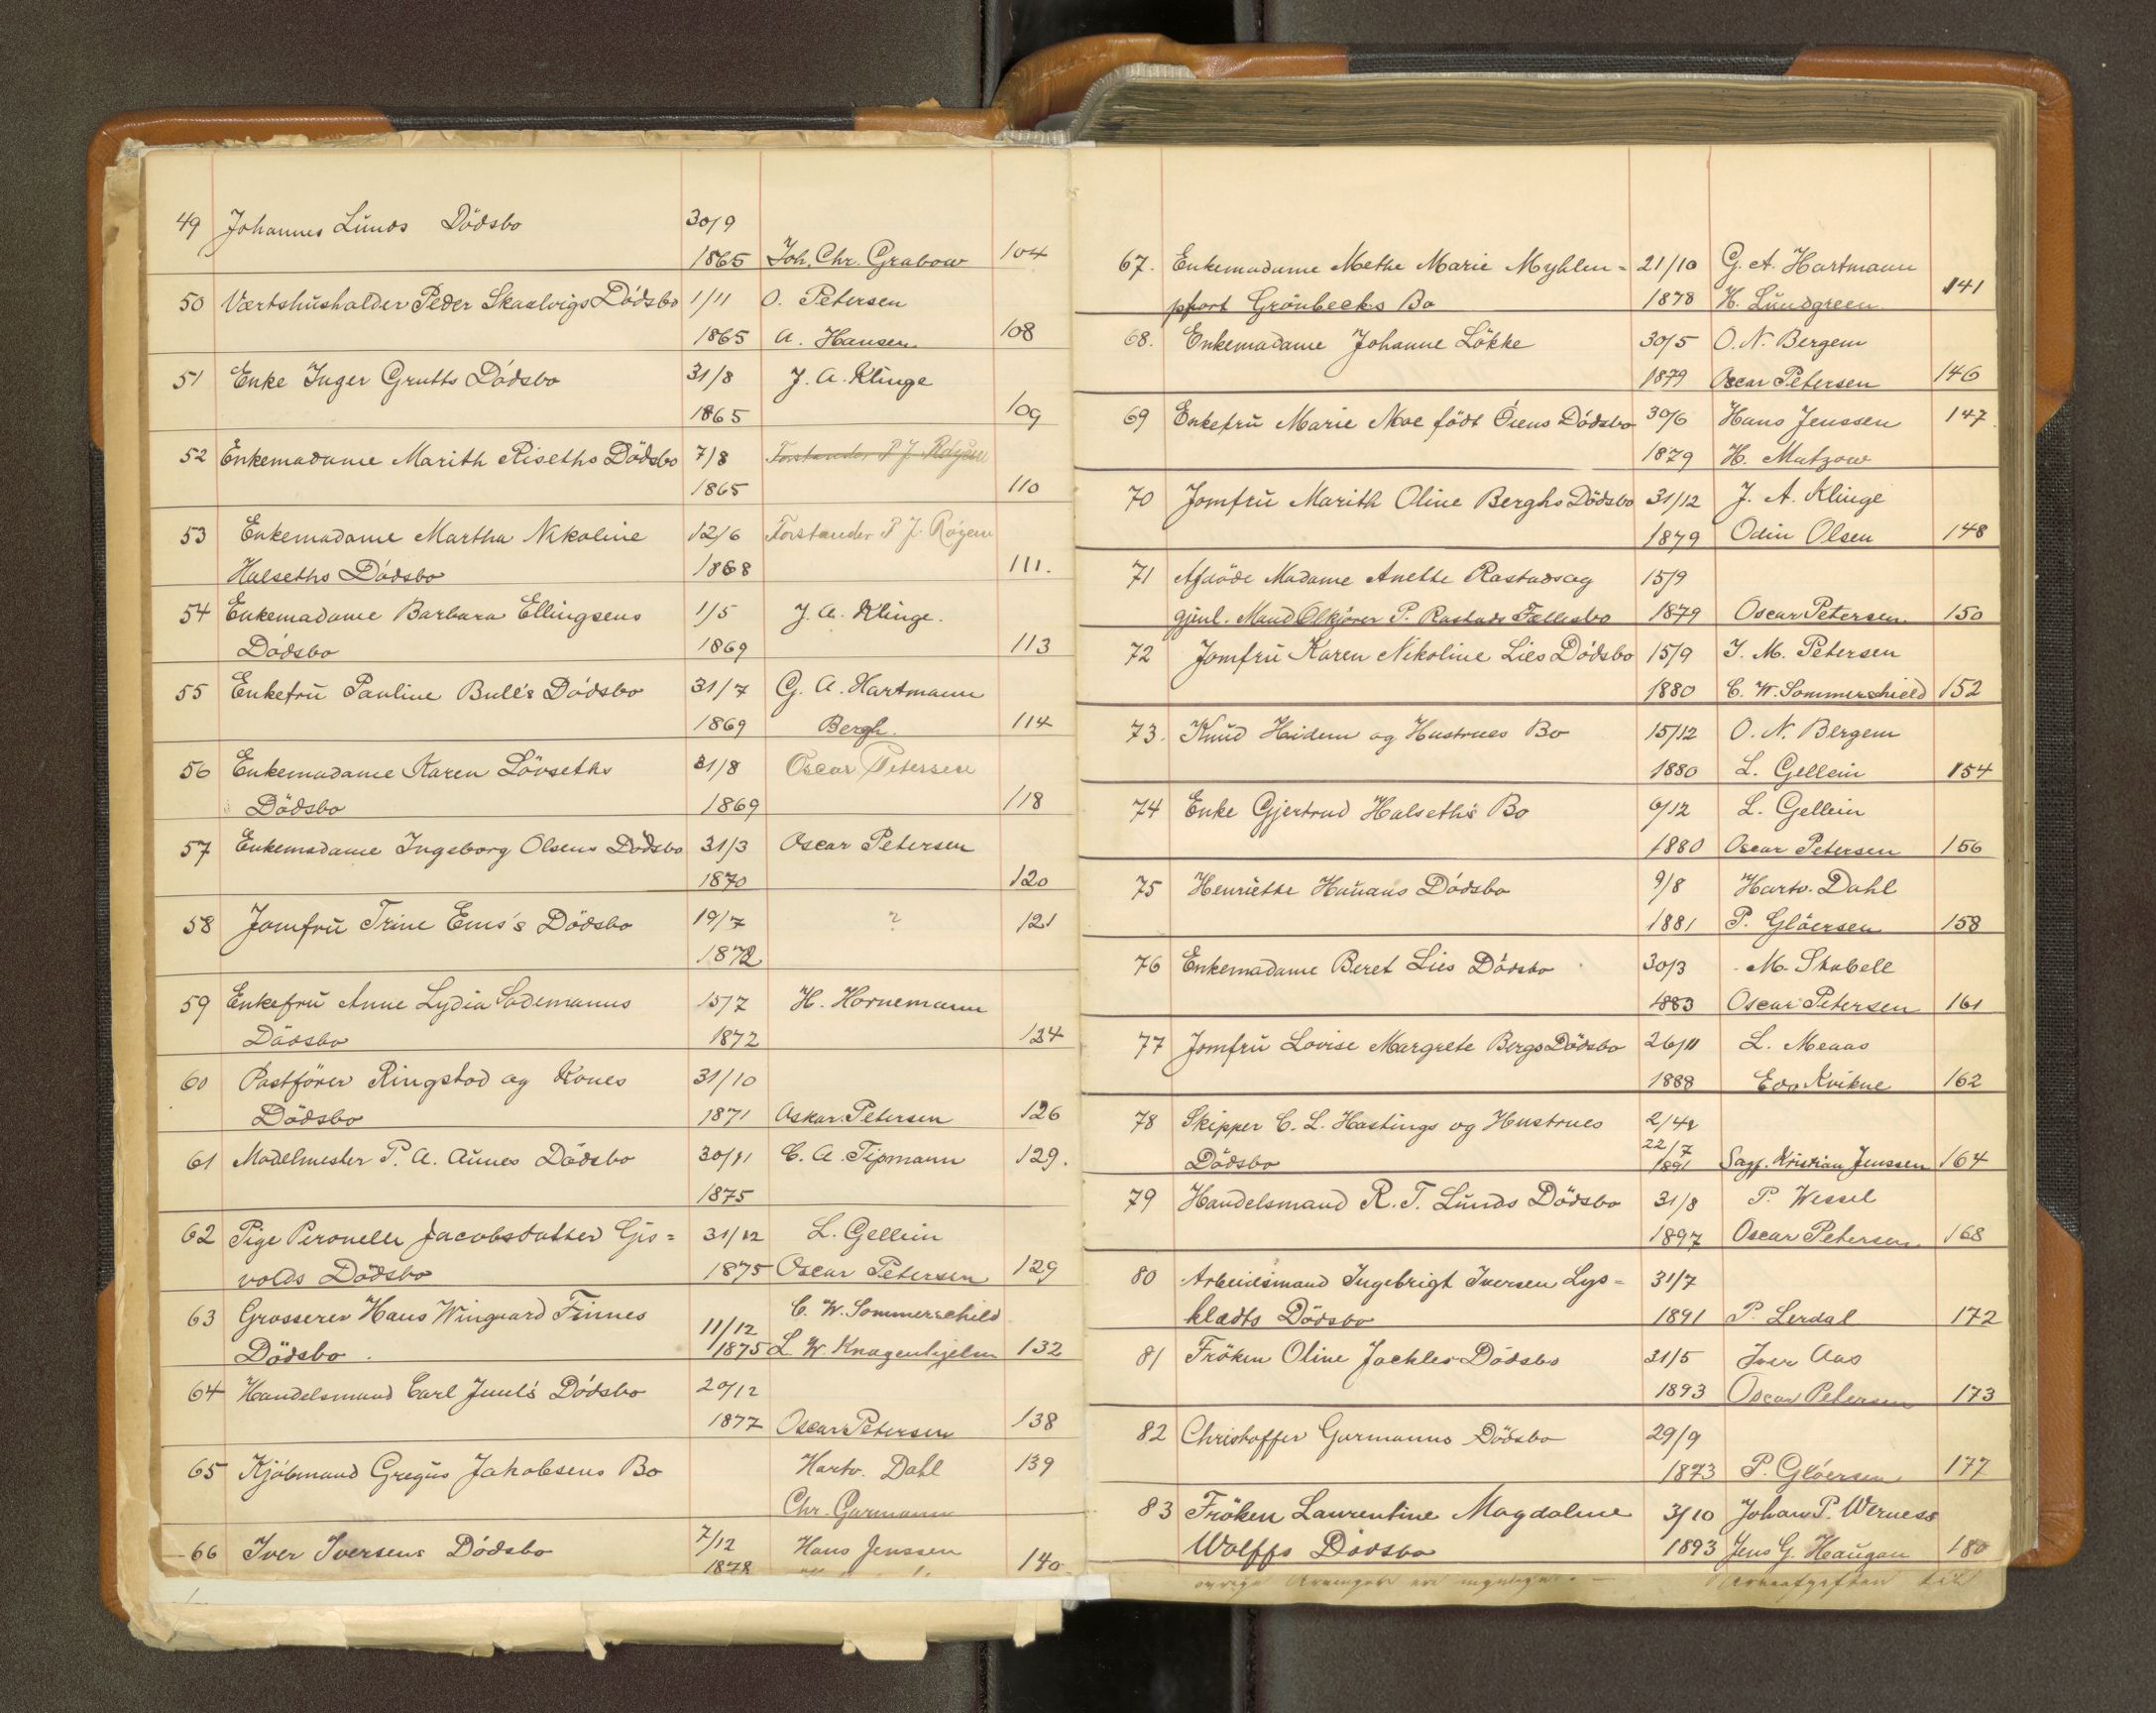 49 Johannes Lunds Dödsbo 30/9
1865 Joh. Chr. Grabow 104
50 Værtshusholder Peder Skaalvigs Dödsbo 1/11 O. Petersen
1865 A. Hansen 108
51 Enke Inger Grutts Dödsbo 31/8 J. A. Klinge
1865 109
52 Enkemadame Marith Riseths Dödsbo 7/8 Forstander P J. Røgen
1865 110
53 Enkemadame Martha Nikoline 12/6 Forstander P J. Røgen
Halseths Dödsbo 1868 111.
54 Enkemadame Barbara Ellingsens 1/5 J. A. Klinge.
Dödsbo 1869 113
55 Enkefru Pauline Bull's Dödsbo 31/7 G. A. Hartmann
1869 Bergh. 114
56 Enkemadame Karen Lövseths 31/8 Oscar Petersen
Dödsbo 1869 118
57 Enkemadame Ingeborg Olsens Dödsbo 31/3 Oscar Petersen
1870 120
58 Jomfru Trine Ems's Dödsbo 19/7 ? 121
1872
59 Enkefru Anne Lydia Sademanns 15/7 H. Hornemann
Dödsbo 1872 124
60 Postförer Ringstad og Kones 31/10
Dödsbo 1871 Oskar Petersen 126
61 Madelmester P. A. Aunes Dödsbo 30/11 C. A. Tipmann 129.
1875
62 Pige Peronelle Jacobsdatter Gis=
31/12 L. Gellein
volds Dödsbo 1875 Oscar Petersen 129
63 Grosserer Hans Wingaard Finnes C. W. Sommerschild
11/12
Dödsbo. 1875 L. W. Knagenhjelm 132
64 Handelsmand Carl Juul's Dödsbo 20/12
1877 Oscar Petersen 138
65 Kjöbmand Gregus Jakobsens Bo Hartv. Dahl 139
Chr. Garmann
66 Iver Iversens Dödsbo 7/12 Hans Jenssen
1878 140.
67. Enkemadame Methe Marie Myhlen= 21/10 G. A. Hartmann
pfort Grönbecks Bo 1878 H. Lundgreen 141
68. Enkemadame Johanne Lökke 30/5 O. N. Bergem
1879 Oscar Petersen 146
69 Enkefru Marie Moe födt Öiens Dödsbo 30/6 Hans Jenssen 147
1879 H. Matzow
70 Jomfru Marith Oline Berghs Dödsbo 31/12 J. A. Klinge
1879 Odin Olsen 148
71 Afdöde Madame Anette Rastads og 15/9
gjenl. Mand Ølkjører P. Rastads Fællesbo 1879 Oscar Petersen 150
72 Jomfru Karen Nikoline Lies Dödsbo 15/9 J. M. Petersen
1880 C. W. Sommerschield 152
73. Knud Heidem og Hustrues Bo 15/12 O. N. Bergem
1880 L. Gellein 154
74 Enke Gjertrud Halseth's Bo 6/12 L. Gellein
1880 Oscar Petersen 156
75 Henriette Hanans Dödsbo 9/8 Hartv. Dahl
1881 P. Glöersen 158
76 Enkemadame Beret Lies Dödsbo 30/3 M. Stabell
1883 Oscar Petersen 161
77 Jomfru Lovise Margrete Bergs Dödsbo 26/11 L. Meaas
1888 Edv Kvikne 162
78 Skipper C. L. Hastings og Hustrues 2/4 &
22/7
Dödsbo 1891 Sagf. Kristian Jenssen 164
79 Handelsmand R. T. Lunds Dödsbo 31/8 P. Wessel
1897 Oscar Petersen 168
80 Arbeidsmand Ingebrigt Iversen Lys= 31/7
kladts Dödsbo 1891 P. Lerdal 172
81 Fröken Oline Jackles Dödsbo 31/5 Iver Aas
1893 Oscar Petersen 173
82 Christoffer Garmanns Dödsbo 29/9
1873 P. Glöersen 177
83 Fröken Laurentine Magdalene 3/10 Johan P. Werness
Wolffs Dödsbo 1893 Jens G. Haugan 180